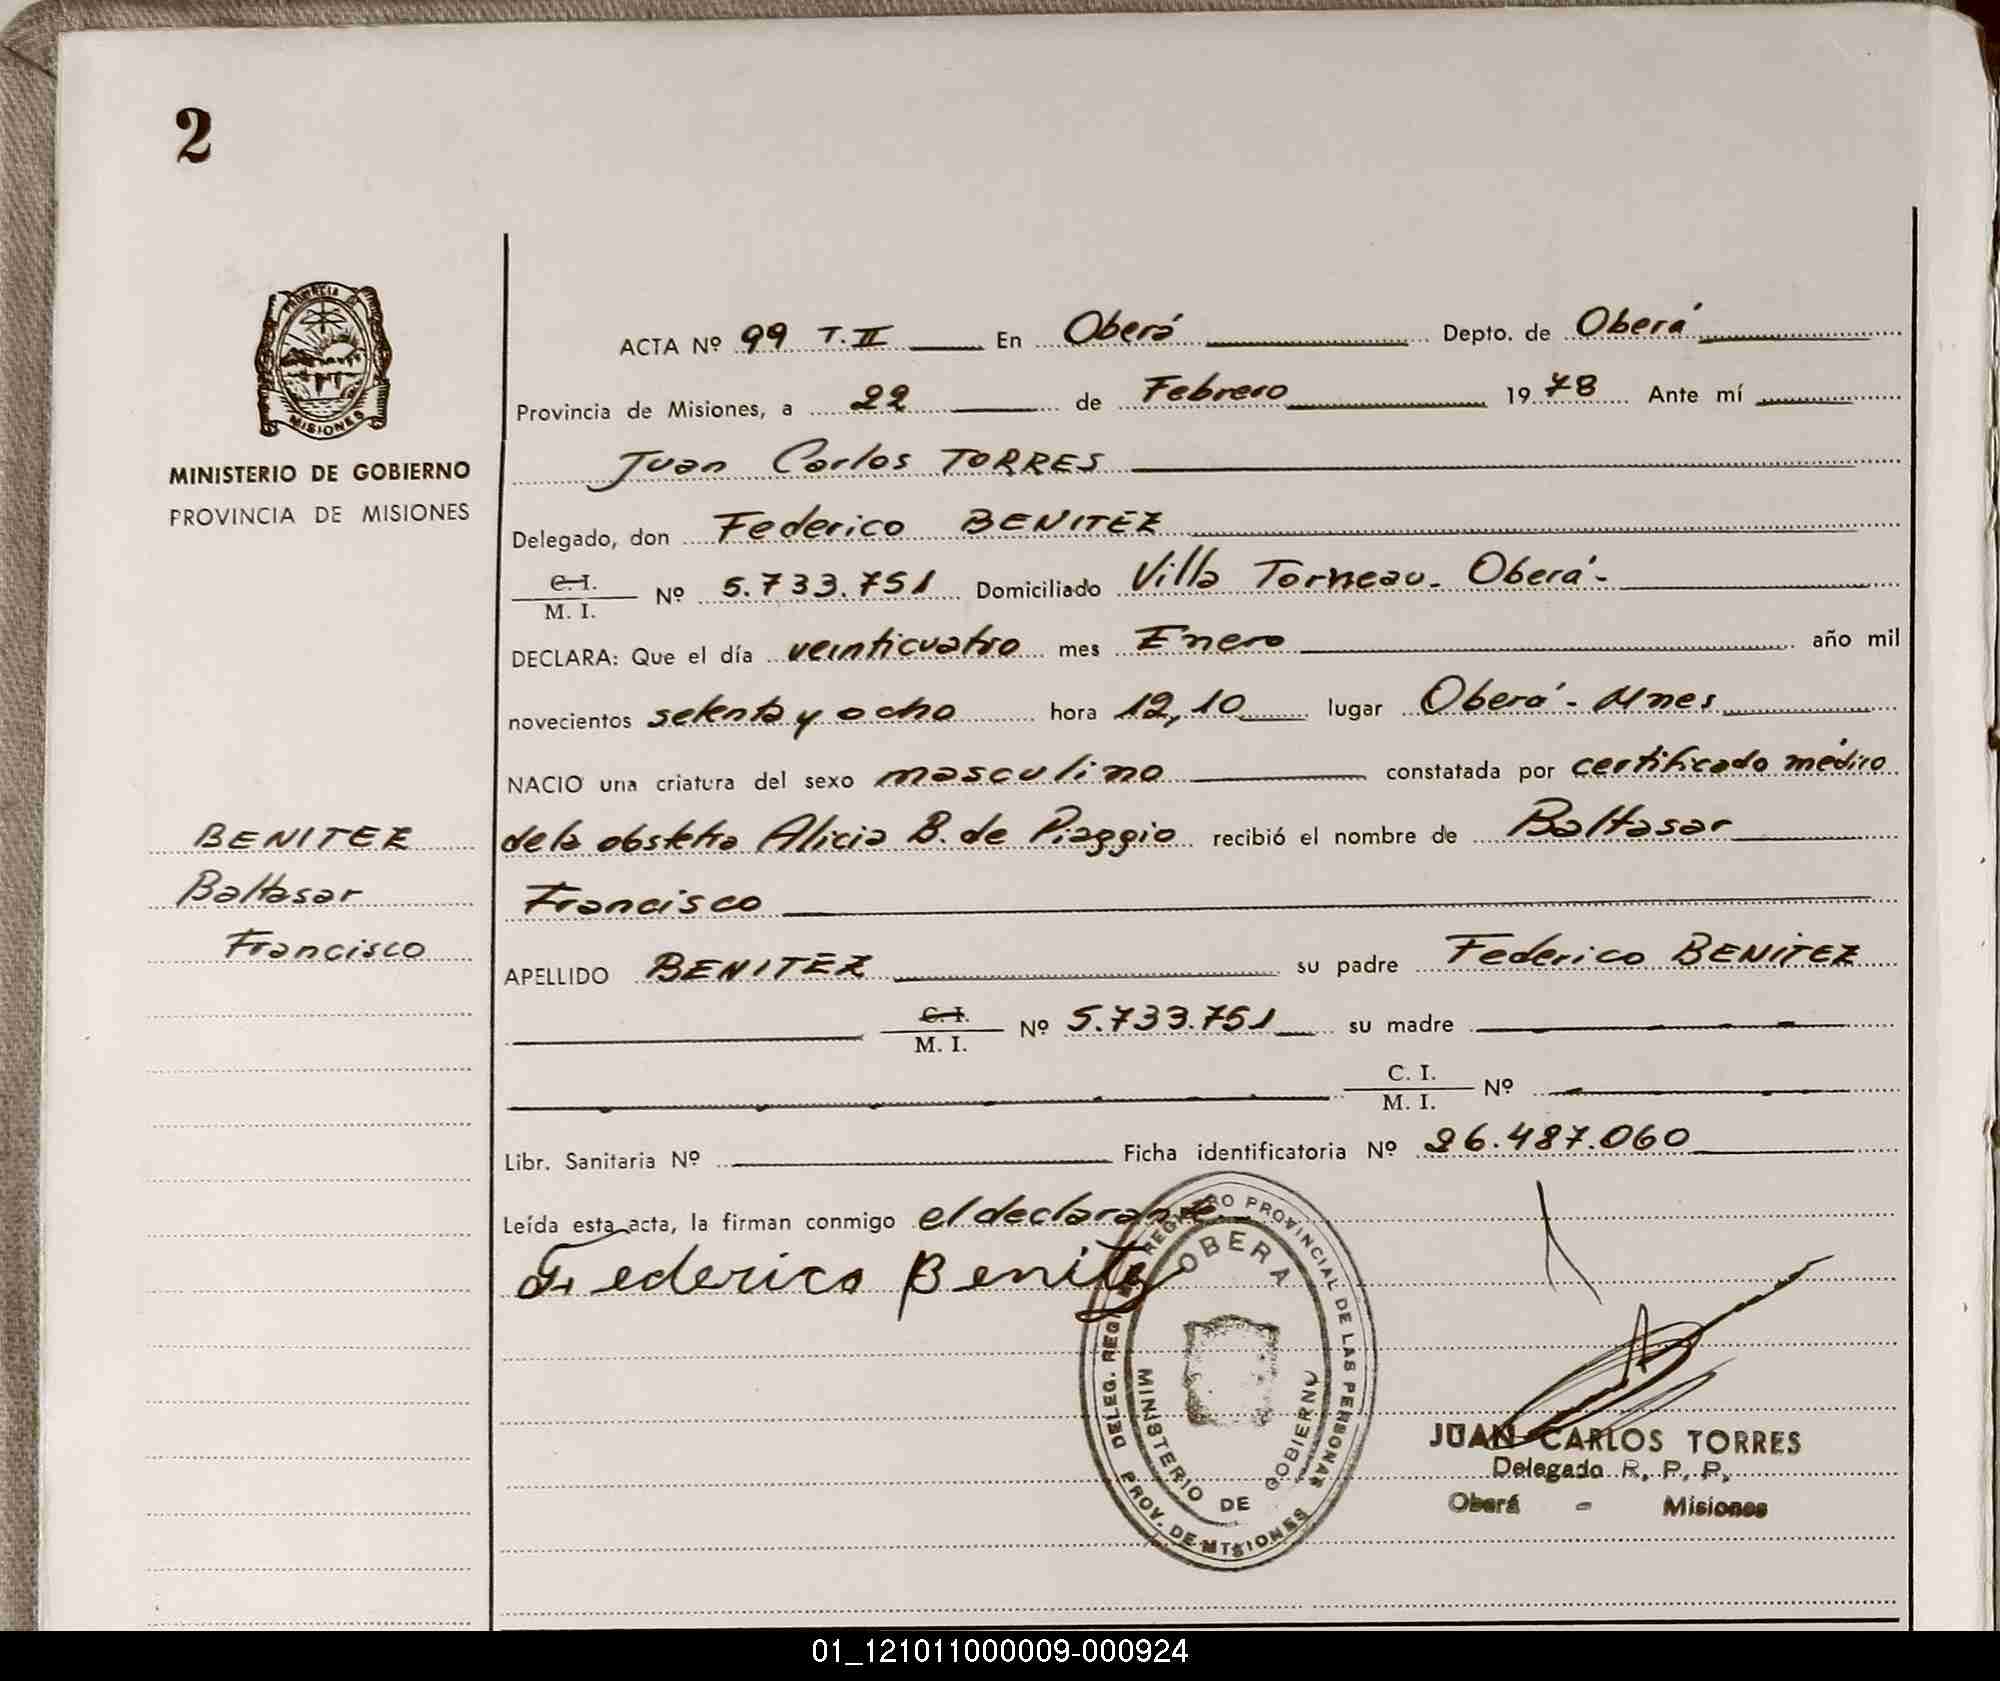 2
PROVINCIA DE
MISIONES
MINISTERIO DE GOBIERNO
PROVINCIA DE MISIONES
ACTA Nº 99 T. II En Oberá Depto. de Oberá
Provincia de Misiones, a 22 de Febrero 1978 Ante mí
Juan Carlos TORRES
Delegado, don Federico BENITEZ
C. I.
M. I. Nº 5.733.751 Domiciliado Villa Torneau - Oberá -
DECLARA: Que el día veinticuatro mes Enero año mil
novecientos setenta y ocho hora 12,10 lugar Oberá - Mnes
NACIO una criatura del sexo masculino constatada por certificado médico
BENITEZ de la obstetra Alicia B. de Piaggio recibió el nombre de Baltasar
Baltasar Francisco
Francisco APELLIDO BENITEZ su padre Federico BENITEZ
C. I.
M. I. Nº 5.733.751 su madre
C. I.
M. I. Nº
Libr. Sanitaria Nº Ficha identificatoria Nº 26.487.060
Leída esta acta, la firman conmigo el declarante
Federico Benitez
DELEG. REG. REGISTRO PROVINCIAL DE LAS PERSONAS
OBERA
MINISTERIO DE GOBIERNO
PROV. DE MISIONES
JUAN CARLOS TORRES
Delegado R. P. P.
Oberá - Misiones
01_121011000009-000924